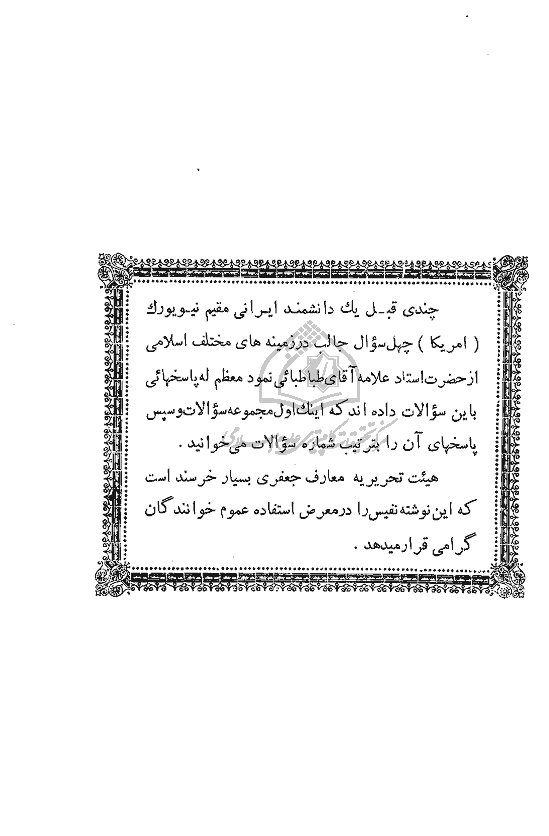 چندی قبل يك دانشمند ايرانی مقيم نيويورك
( امريكا ) چهل سؤال جالب در زمينه های مختلف اسلامی
از حضرت استاد علامه آقای طباطبائی نمود معظم له پاسخهائی
باين سؤالات داده اند كه اينك اول مجموعه سؤالات و سپس
پاسخهای آن را بترتيب شماره سؤالات می خوانيد .
هيئت تحريريه معارف جعفری بسيار خرسند است
كه اين نوشته نفيس را در معرض استفاده عموم خوانندگان
گرامی قرار ميدهد .